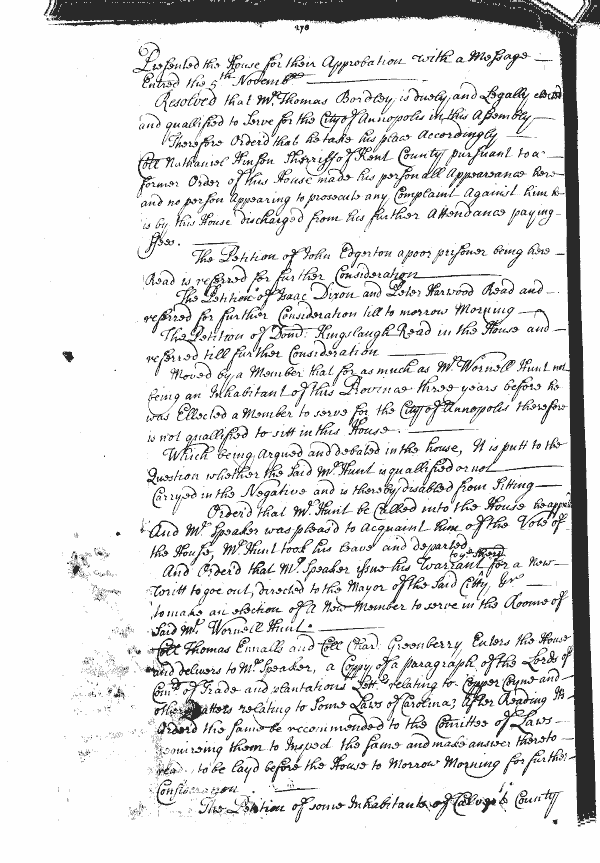 278
Presented the House for their Approbation with a Message
Entred the 5th Novemb
Resolved that Mr. Thomas Bordley is duely and Legally elected
and quallified to Serve for the City of Annopolis in this Assembly
Therefore Orderd that he take his place Accordingly
Coll Nathaniel Hinson Sherriff of Kent County pursuant to a
former Order of this House made his personall Appeareance here
and no person Appearing to prosecute any Complaint Against him
is by this House discharged from his further Attendance paying
ffees.
The Petition of John Edgerton a poor prisoner being here
Read is referred for further Consideration
The Petition of Isaac Dixon and Peter Harwood Read and
referred for further Consideration till to morrow Morning
The Petition of Dond: Kingslaugh Read in the House and
referred till further Consideration
Moved by a Member that for as much as Mr. Wornell Hunt not
being an Inhabitant of this Province three years before he
was Ellected a Member to serve for the City of Annopolis therefore
is not quallified to sitt in this House.
Which being Argued and debated in the house, It is putt to the
Question whether the Said Mr. Hunt is quallified or not
Carryed in the Negative and is thereby disabled from Sitting
Orderd that Mr. Hunt be Called into the House he
And Mr. Speaker was pleasd to Acquaint him of the Vote of
the House, Mr. Hunt took his leave and departed
And Orderd that Mr. Speaker issue his Warrant for a New
Writt to goe out, directed to the Mayor of the Said Citty
to make an election of a New Member to serve in the Roome of
Said Mr. Wornell Hunt.
Coll Thomas Ennalls and Coll Char: Greenberry Enters the House
and delivers to Mr. Speaker, a Coppy of a paragraph of the Lords of
of Trade and plantations Lettr. relating to Copper Coyne and
other Matters relating to Some Laws of Carolina; After Reading
Orderd the Same be recommended to the Comittee of Laws
requireing them to Inspect the Same and make answer thereto
to be layd before the House to Morrow Morning for further
Consideration
The Petition of some Inhabitants of Calvert County